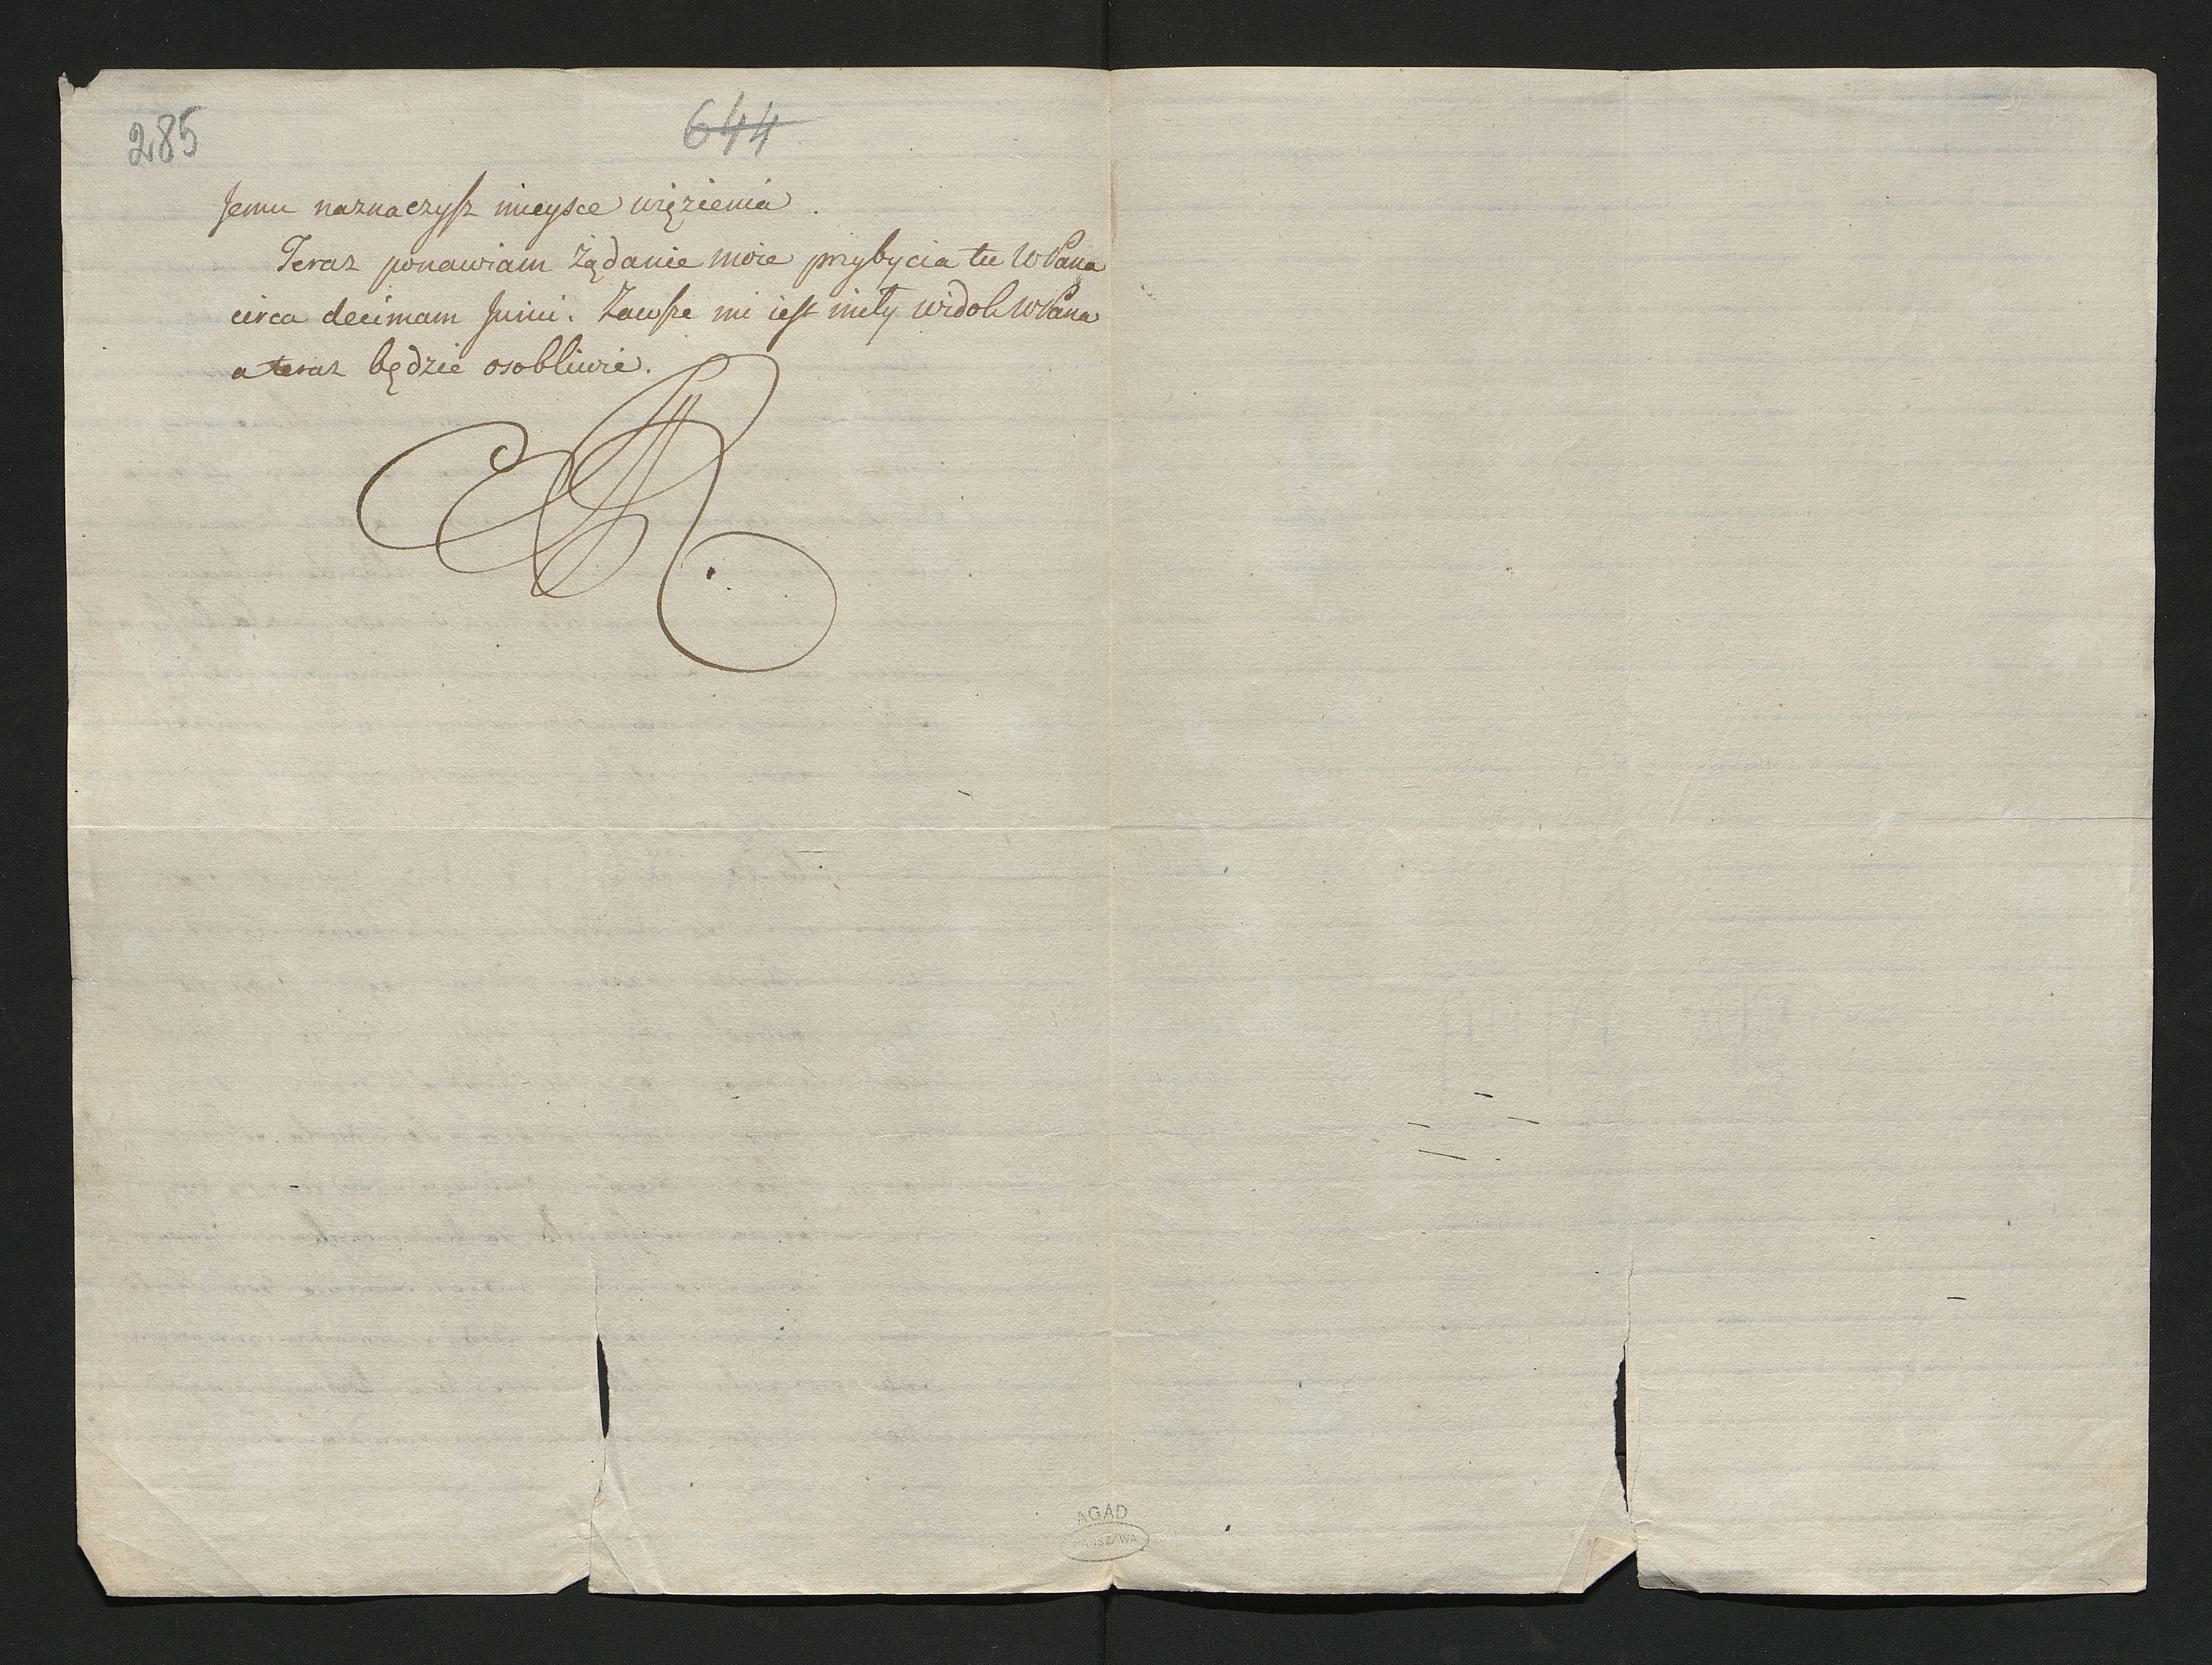 285
644
Jemu naznaczysz mieysce więzienia.
Teraz ponawiam żądanie moie przybycia tu WPana
circa decimam Junii. Zawsze mi iest miły widok WPana
a teraz będzie osobliwie.
AGAD
WARSZAWA